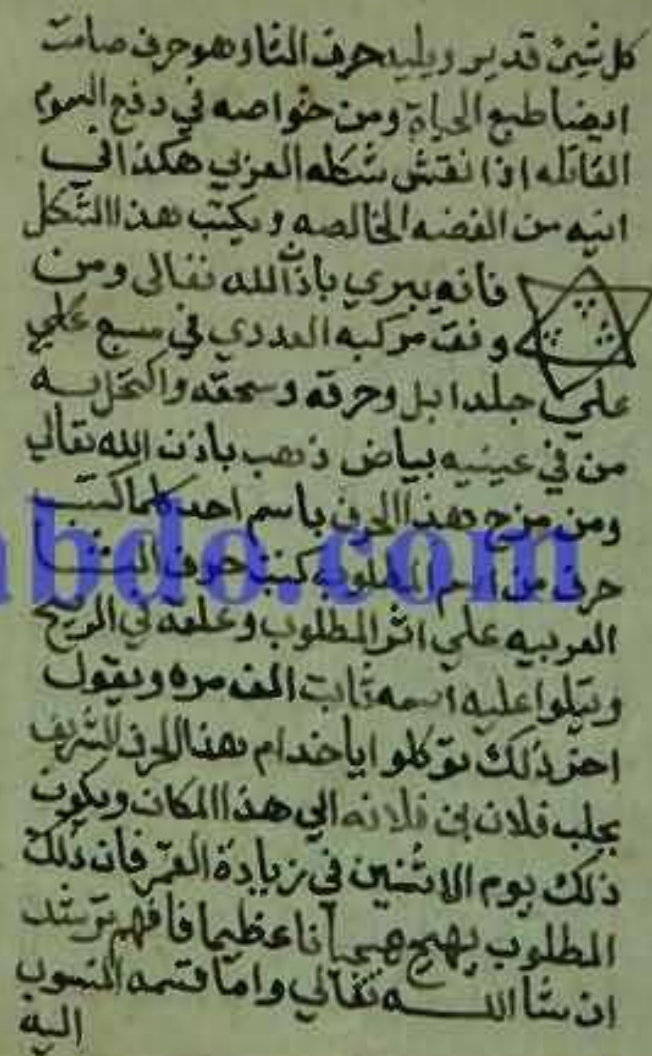 كل شئ قدير ويليه حرف الثا وهو حرف صامت
ايضا طبع الحياة ومن خواصه في دفع السموم
القاتله اذا نقش شكله العربي هكذا في
انيه من الفضه الخالصه ويكتب هذا الشكل
فانه يبري باذن الله تعالى ومن
وفق مركبه العددي في سبع علي
علي جلد ابل وحرقه وسحقه واكتحل به
من في عينيه بياض ذهب باذن الله تعالي
ومن مزج هذا الحرف باسم احد كلما كتب
حرف من اسم المطلوب كتب حرف الثا
العربيه علي اثر المطلوب وعلقه في الريح
ويتلوا عليه اسمه ثابت الف مره ويقول
اخر ذلك توكلوا يا خدام هذا الحرف الشريف
بجلب فلان بن فلانه الي هذا المكان ويكون
ذلك يوم الاثنين في زيادة القمر فان ذلك
المطلوب يهيج هيجانا عظيما فافهم ترشد
ان شا الله تعالي واما قسمه المنسوب
اليه
abdo.com